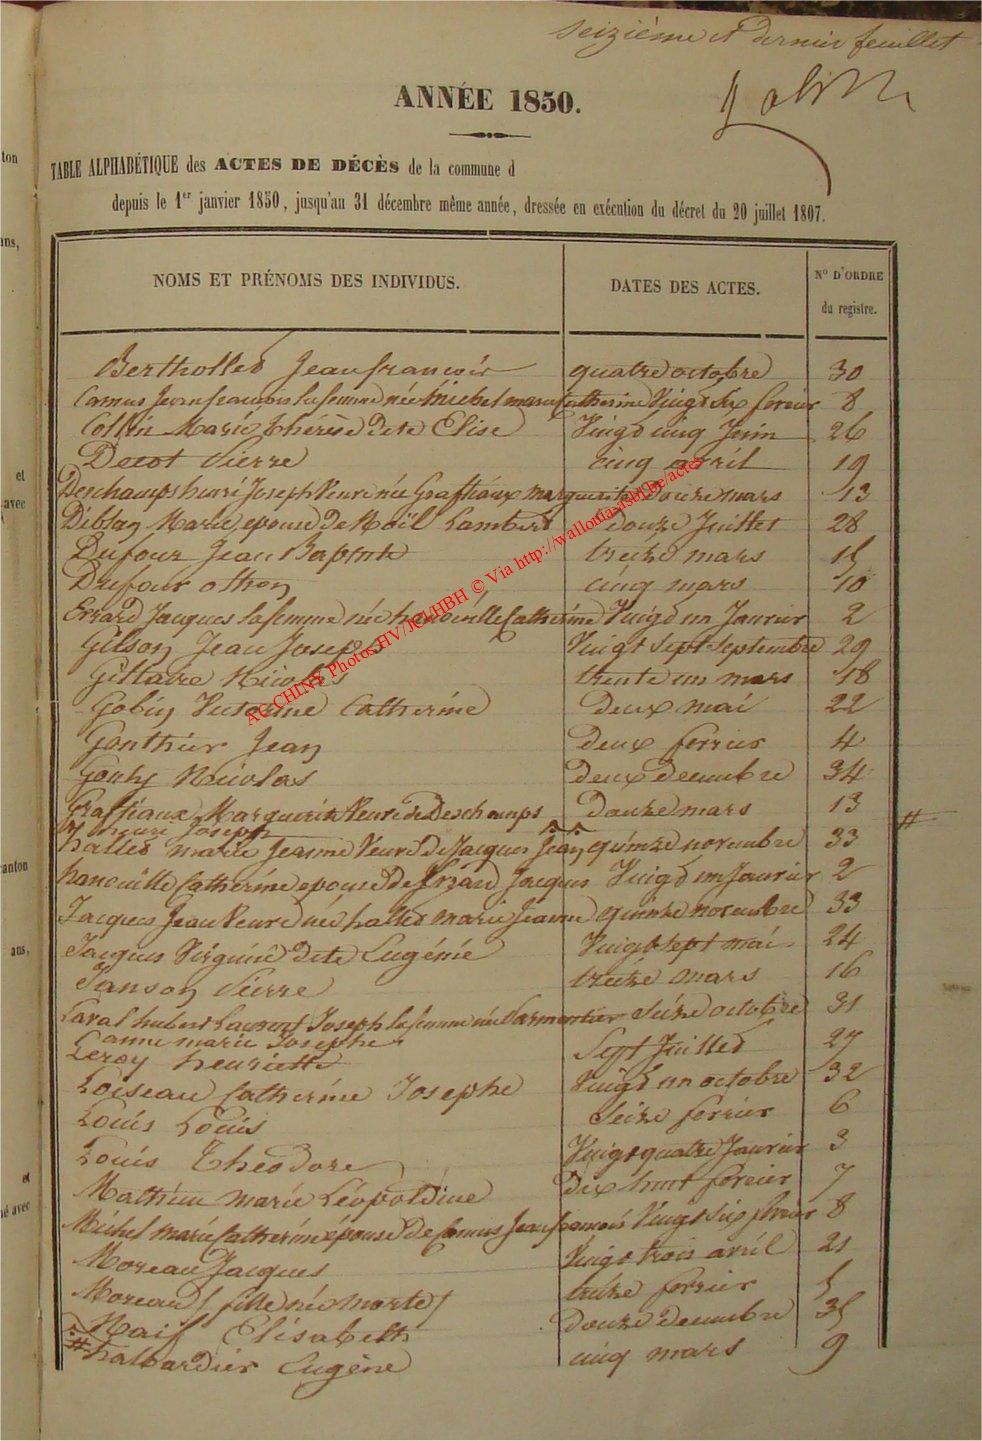 seizième et dernier feuillet
ANNÉE 1850.
TABLE ALPHABÉTIQUE des ACTES DE DÉCÈS de la commune d
depuis le 1er janvier 1850, jusqu'au 31 décembre même année, dressée en exécution du décret du 20 juillet 1807.
NOMS ET PRÉNOMS DES INDIVIDUS. DATES DES ACTES. No D'ORDRE
du registre.
Bertholles Jean francois quatre octobre 30
Camus Jean francois la femme née Michel marie Catherine Vingt six fevrier 8
Collin Marie thérèse dete Elise Vingt cinq Juin 26
Decot Pierre cinq avril 19
Deschamps henri Joseph Veuve née Graftiaux marguerite douze mars 13
Deblan Marie epouse de Noël Lambert douze Juillet 28
Dufour Jean Baptiste treize mars 15
Dufour othon cinq mars 10
Erzard Jacques la femme née hanouille Catherine Vingt un Janvier 2
Gilson Jean Joseph Vingt sept septembre 29
Gillaire Nicolas trente un mars 18
Gobin Victorine Catherine deux mai 22
Gonthier Jean deux fevrier 4
Gouty Nicolas deux decembre 34
Graftiaux Marguerite Veuve de Deschamps douze mars 13
henri Joseph
halles marie Jeanne Veuve de Jacques Jean quinze novembre 33
hanouille Catherine epouse de Erzard Jacques Vingt un Janvier 2
Jacques Jean Veuve née halles marie Jeanne quinze novembre 33
Jacques Virginie dete Eugénie Vingt sept mai 24
Janson Pierre treize mars 16
Laval hubert Laurent Joseph la femme née Parmentier seize octobre 31
anne marie Josephe
Leroy henriette Sept Juillet 27
Loiseau Catherine Josephe Vingt un octobre 32
Louis Louis seize fevrier 6
Louis Théodore Vingt quatre Janvier 3
Mathieu marie Léopoldine dix huit fevrier 7
Michel marie Catherine épouse de Camus Jean francois Vingt six fevrier 8
Moreau Jacques Vingt trois avril 21
Moreau (fille née morte) treize fevrier 5
Naif Elisabeth douze decembre 35
# halbardier Eugène cinq mars 9
#
AG CHINY Photos HV/JCL/HBH © Via http://wallonia-asbl.be/actes
ton
ans,
et
avec
canton
ans,
et
né avec